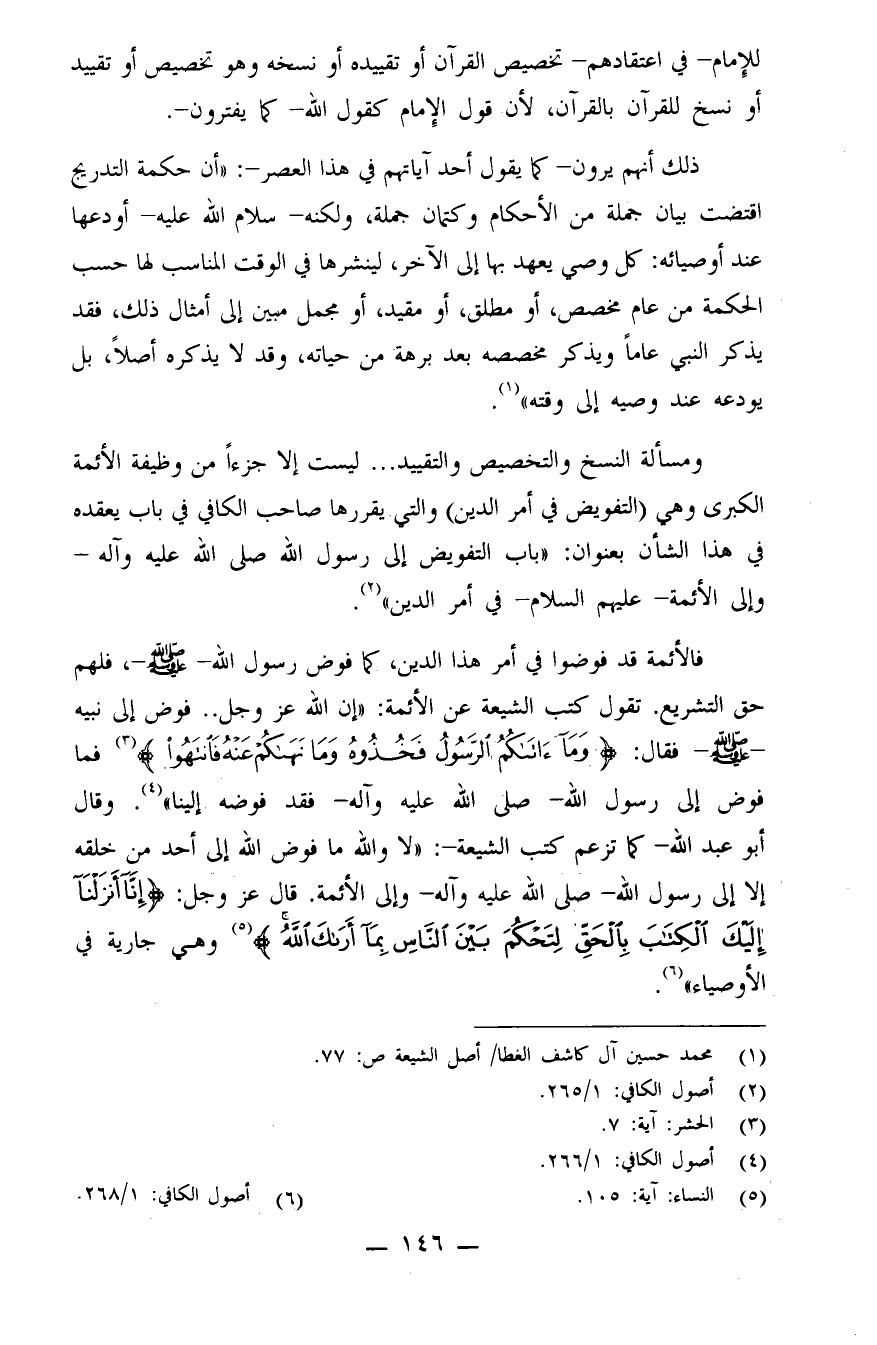 للإمام– في اعتقادهم– تخصيص القرآن أو تقييده أو نسخه وهو تخصيص أو تقييد
أو نسخ للقرآن بالقرآن، لأن قول الإمام كقول الله– كما يفترون–.
ذلك أنهم يرون– كما يقول أحد آياتهم في هذا العصر–: «أن حكمة التدريج
اقتضت بيان جملة من الأحكام وكتمان جملة، ولكنه– سلام الله عليه– أودعها
عند أوصيائه: كل وصي يعهد بها إلى الآخر، لينشرها في الوقت المناسب لها حسب
الحكمة من عام مخصص، أو مطلق، أو مقيد، أو مجمل مبين إلى أمثال ذلك، فقد
يذكر النبي عاماً ويذكر مخصصه بعد برهة من حياته، وقد لا يذكره أصلاً، بل
يودعه عند وصيه إلى وقته»(١).
ومسألة النسخ والتخصيص والتقييد... ليست إلا جزءاً من وظيفة الأئمة
الكبرى وهي (التفويض في أمر الدين) والتي يقررها صاحب الكافي في باب يعقده
في هذا الشأن بعنوان: «باب التفويض إلى رسول الله صلى الله عليه وآله –
وإلى الأئمة– عليهم السلام– في أمر الدين»(٢).
فالأئمة قد فوضوا في أمر هذا الدين، كما فوض رسول الله– ﷺ–، فلهم
حق التشريع. تقول كتب الشيعة عن الأئمة: «إن الله عز وجل.. فوض إلى نبيه
–ﷺ– فقال: ﴿ وَمَآ ءَاتَىٰكُمُ ٱلرَّسُولُ فَخُذُوهُ وَمَا نَهَىٰكُمْ عَنْهُ فَٱنتَهُوا۟ ﴾(٣) فما
فوض إلى رسول الله– صلى الله عليه وآله– فقد فوضه إلينا»(٤). وقال
أبو عبد الله– كما تزعم كتب الشيعة–: «لا والله ما فوض الله إلى أحد من خلقه
إلا إلى رسول الله– صلى الله عليه وآله– وإلى الأئمة. قال عز وجل: ﴿إِنَّآ أَنزَلْنَآ
إِلَيْكَ ٱلْكِتَـٰبَ بِٱلْحَقِّ لِتَحْكُمَ بَيْنَ ٱلنَّاسِ بِمَآ أَرَىٰكَ ٱللَّهُ ۚ ﴾(٥) وهي جارية في
الأوصياء»(٦).
(١) محمد حسين آل كاشف الغطا/ أصل الشيعة ص: ٧٧.
(٢) أصول الكافي: ٢٦٥/١.
(٣) الحشر: آية: ٧.
(٤) أصول الكافي: ٢٦٦/١.
(٥) النساء: آية: ١٠٥. (٦) أصول الكافي: ٢٦٨/١.
– ١٤٦ –